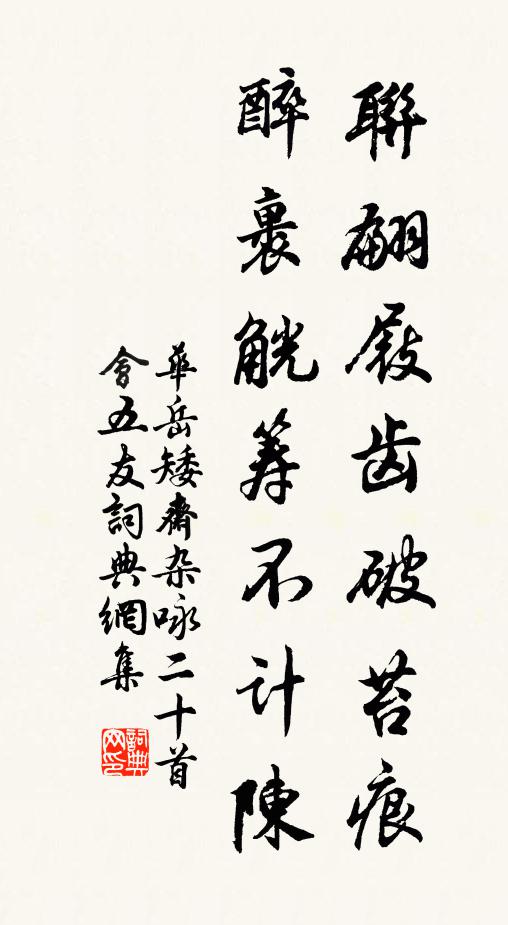 聯翩屐齒破苔痕
醉裹觥筹不計陳
華岳矮齋杂咏二十首
會五友詞典網集
詞典网印